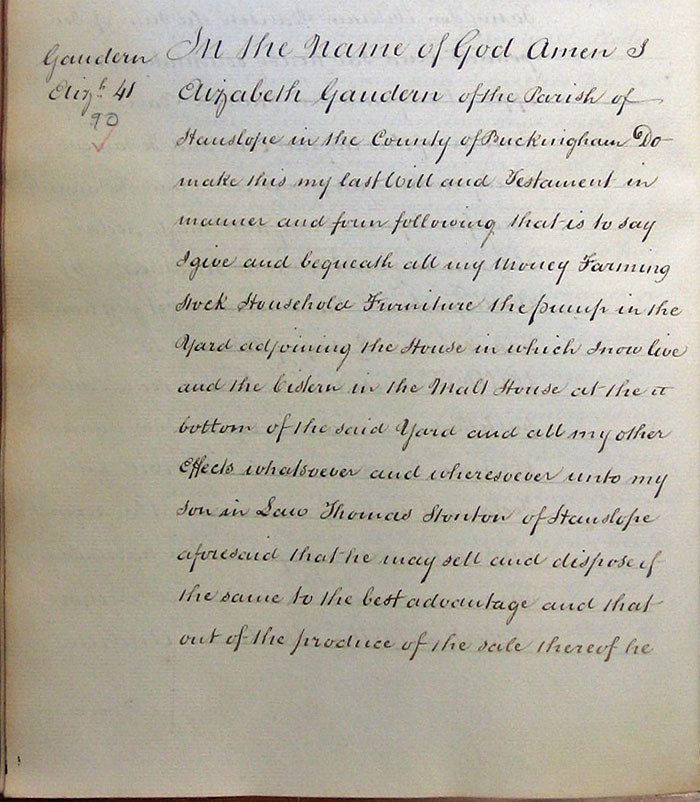 Gaudern
Eliz.h 41
90
In the Name of God Amen I
Elizabeth Gaudern of the Parish of
Hanslope in the County of Buckingham Do
make this my last Will and Testament in
manner and form following that is to say
I give and bequeath all my Money Farming
Stock Household Furniture the pump in the
Yard adjoining the House in which I now live
and the Cistern in the Malt House at the
bottom of the said Yard and all my other
Effects whatsoever and wheresoever unto my
son in Law Thomas Stonton of Hanslope
aforesaid that he may sell and dispose of
the same to the best advantage and that
out of the produce of the sale thereof he